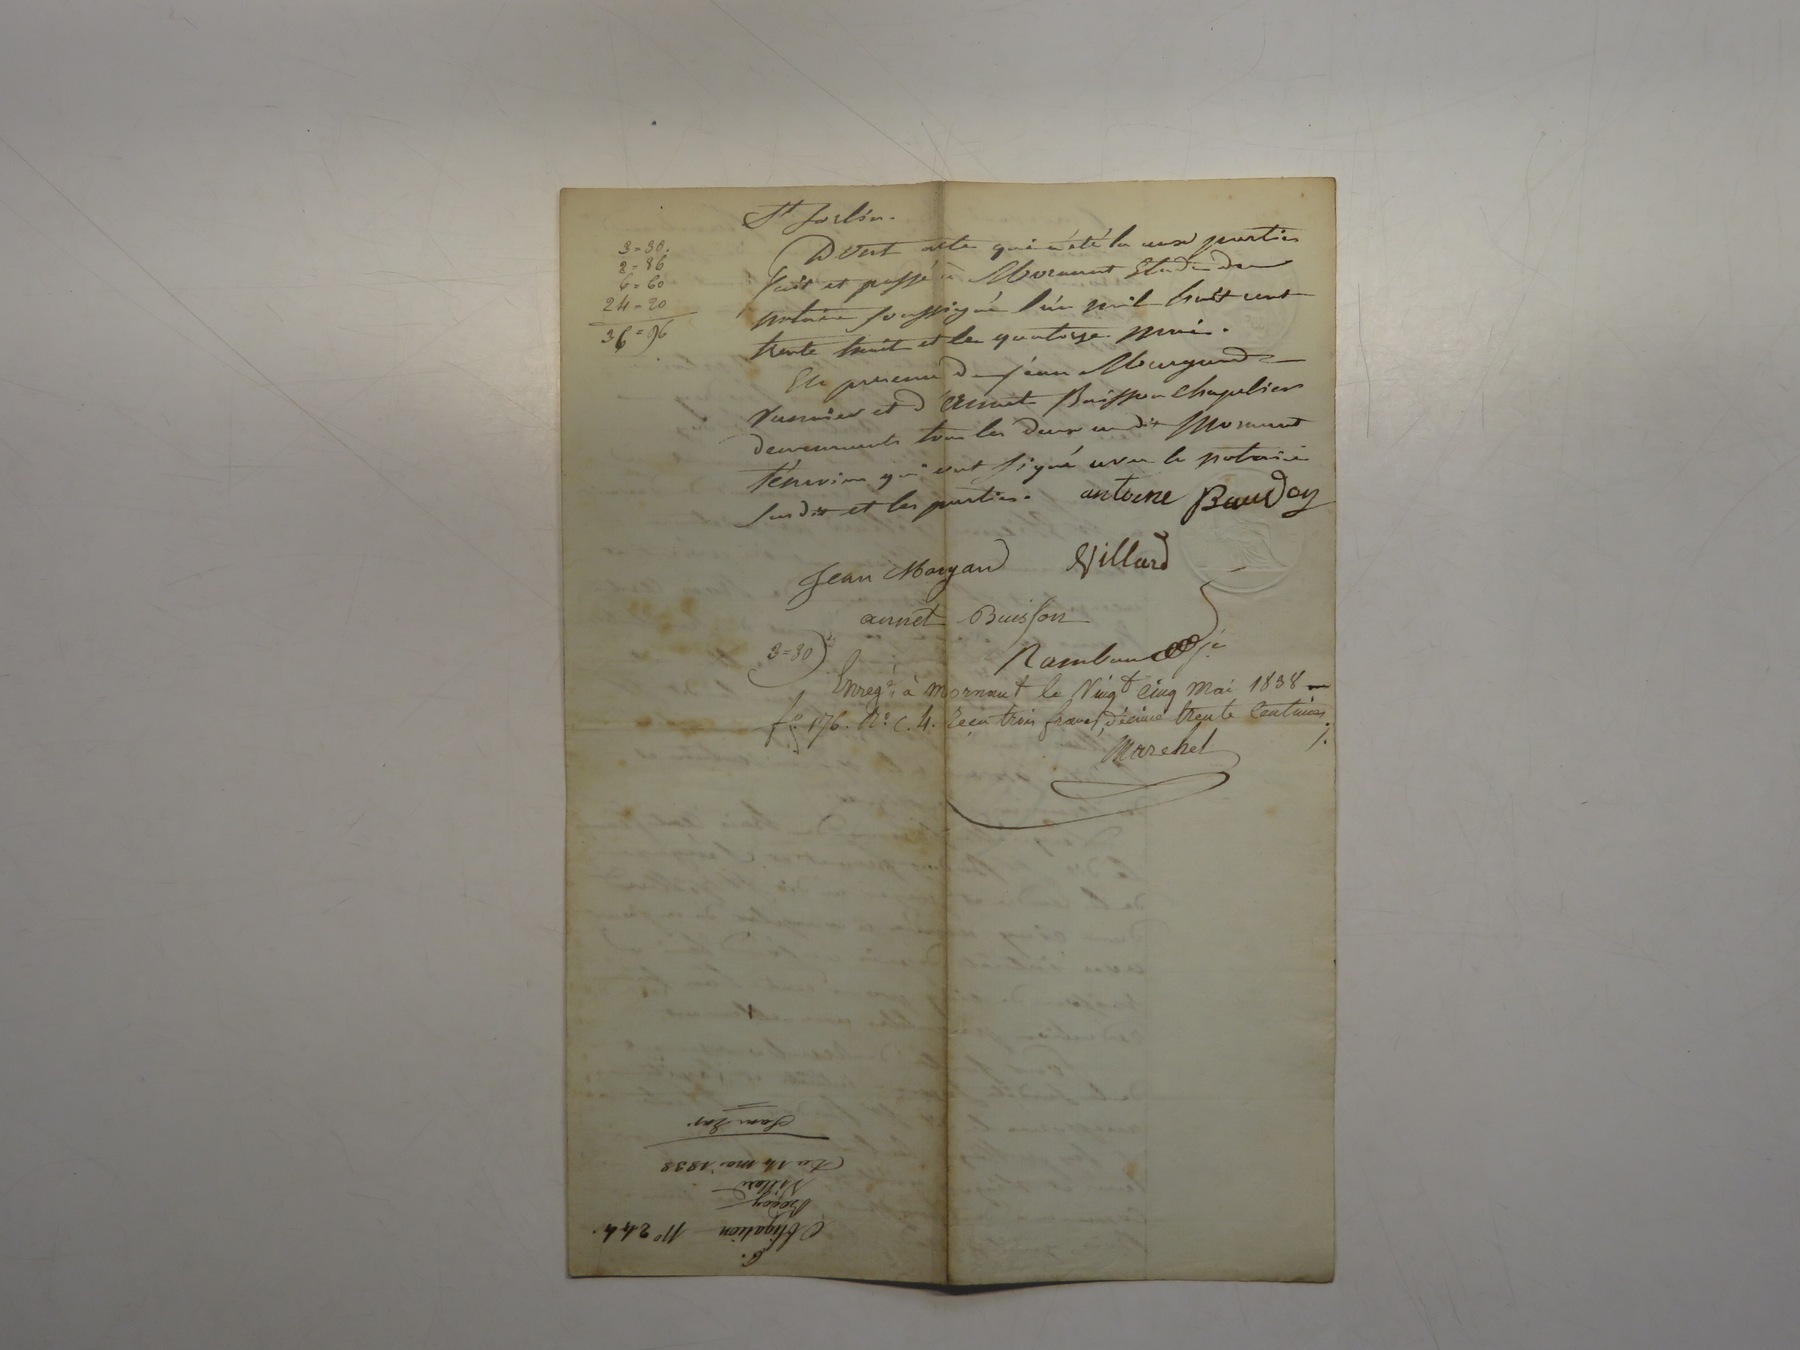 3=30.
2=86
6=60
24=20
36=96
St Sorlin.
Dont acte qui a été lu aux parties
fait et passé à Mornant Etude du
notaire soussigné l'an mil huit cent
trente huit et le quatorze mai.
En présence de Jean Morgand
vannier et d'Annet Buisson chapelier
demeurants tous les deux au dit Mornant
témoins qui ont signé avec le notaire
susdit et les parties. antoine Baudoy
Jean Morgand Villard
annet Buisson
3=30
Enreg.é à Mornant le Vingt cinq Mai 1838
f° 176. R° c. 4. Reçu trois francs, décime trente Centimes
Obligation N° 244.
Villard
Du 14 mai 1838